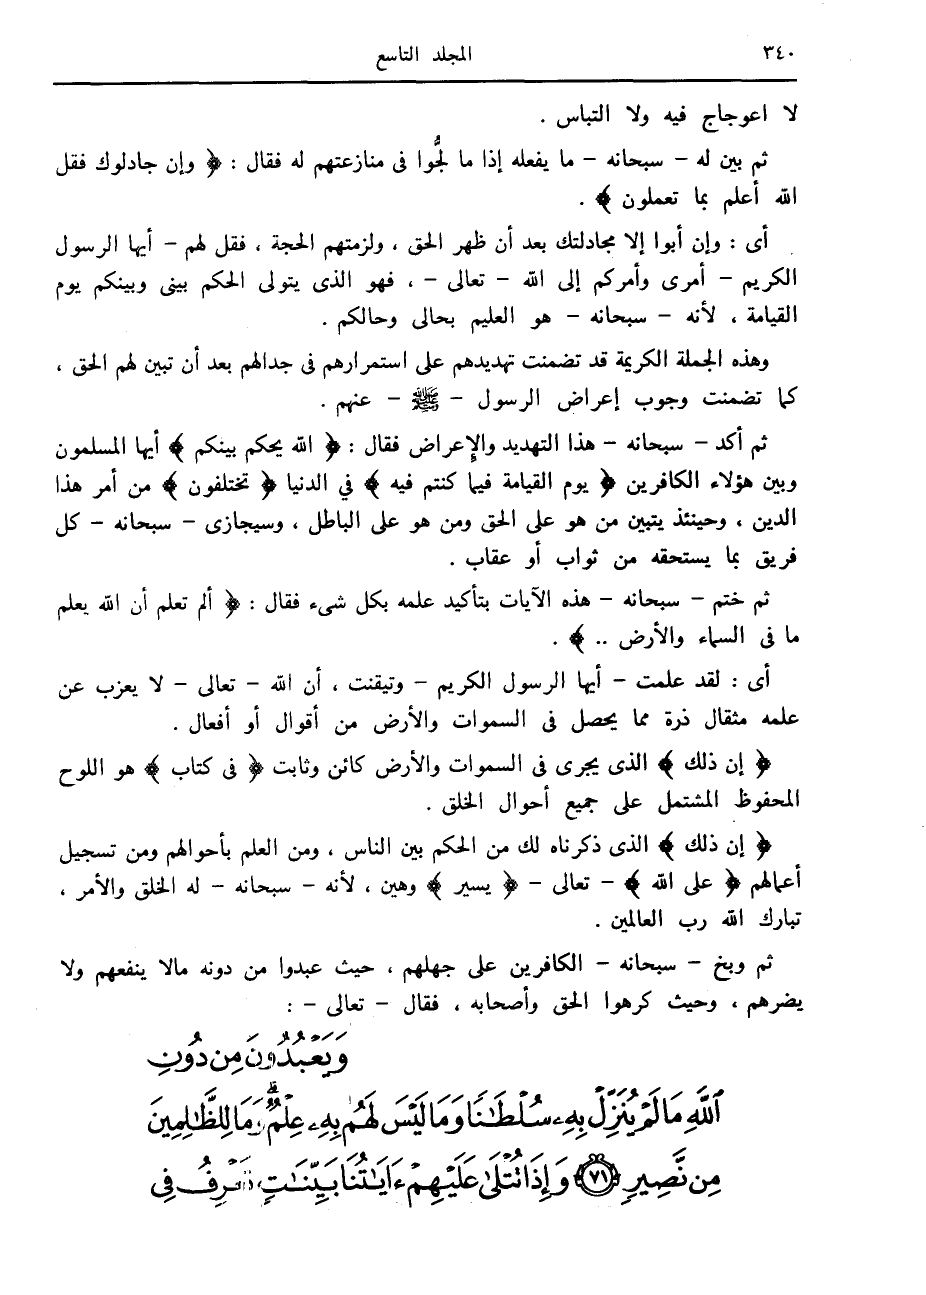 ٣٤٠ المجلد التاسع
لا اعوجاج فيه ولا التباس .
ثم بين له – سبحانه – ما يفعله إذا ما لجُّوا فى منازعتهم له فقال : ﴿ وإن جادلوك فقل
الله أعلم بما تعملون ﴾ .
أى : وإن أبوا إلا مجادلتك بعد أن ظهر الحق ، ولزمتهم الحجة ، فقل لهم – أيها الرسول
الكريم – أمرى وأمركم إلى الله – تعالى – ، فهو الذى يتولى الحكم بينى وبينكم يوم
القيامة ، لأنه – سبحانه – هو العليم بحالى وحالكم .
وهذه الجملة الكريمة قد تضمنت تهديدهم على استمرارهم فى جدالهم بعد أن تبين لهم الحق ،
كما تضمنت وجوب إعراض الرسول – ﷺ – عنهم .
ثم أكد – سبحانه – هذا التهديد والإعراض فقال : ﴿ الله يحكم بينكم ﴾ أيها المسلمون
وبين هؤلاء الكافرين ﴿ يوم القيامة فيما كنتم فيه ﴾ في الدنيا ﴿ تختلفون ﴾ من أمر هذا
الدين ، وحينئذ يتبين من هو على الحق ومن هو على الباطل ، وسيجازى – سبحانه – كل
فريق بما يستحقه من ثواب أو عقاب .
ثم ختم – سبحانه – هذه الآيات بتأكيد علمه بكل شىء فقال : ﴿ ألم تعلم أن الله يعلم
ما فى السماء والأرض .. ﴾ .
أى : لقد علمت – أيها الرسول الكريم – وتيقنت ، أن الله – تعالى – لا يعزب عن
علمه مثقال ذرة مما يحصل فى السموات والأرض من أقوال أو أفعال .
﴿ إن ذلك ﴾ الذى يجرى فى السموات والأرض كائن وثابت ﴿ فى كتاب ﴾ هو اللوح
المحفوظ المشتمل على جميع أحوال الخلق .
﴿ إن ذلك ﴾ الذى ذكرناه لك من الحكم بين الناس ، ومن العلم بأحوالهم ومن تسجيل
أعمالهم ﴿ على الله ﴾ – تعالى – ﴿ يسير ﴾ وهين ، لأنه – سبحانه – له الخلق والأمر ،
تبارك الله رب العالمين .
ثم وبخ – سبحانه – الكافرين على جهلهم ، حيث عبدوا من دونه مالا ينفعهم ولا
يضرهم ، وحيث كرهوا الحق وأصحابه ، فقال – تعالى – :
وَيَعْبُدُونَ مِن دُونِ
ٱللَّهِ مَا لَمْ يُنَزِّلْ بِهِۦ سُلْطَٰنًا وَمَا لَيْسَ لَهُم بِهِۦ عِلْمٌ ۗ وَمَا لِلظَّٰلِمِينَ
مِن نَّصِيرٍ ﴿٧١﴾ وَإِذَا تُتْلَىٰ عَلَيْهِمْ ءَايَٰتُنَا بَيِّنَٰتٍ تَعْرِفُ فِى